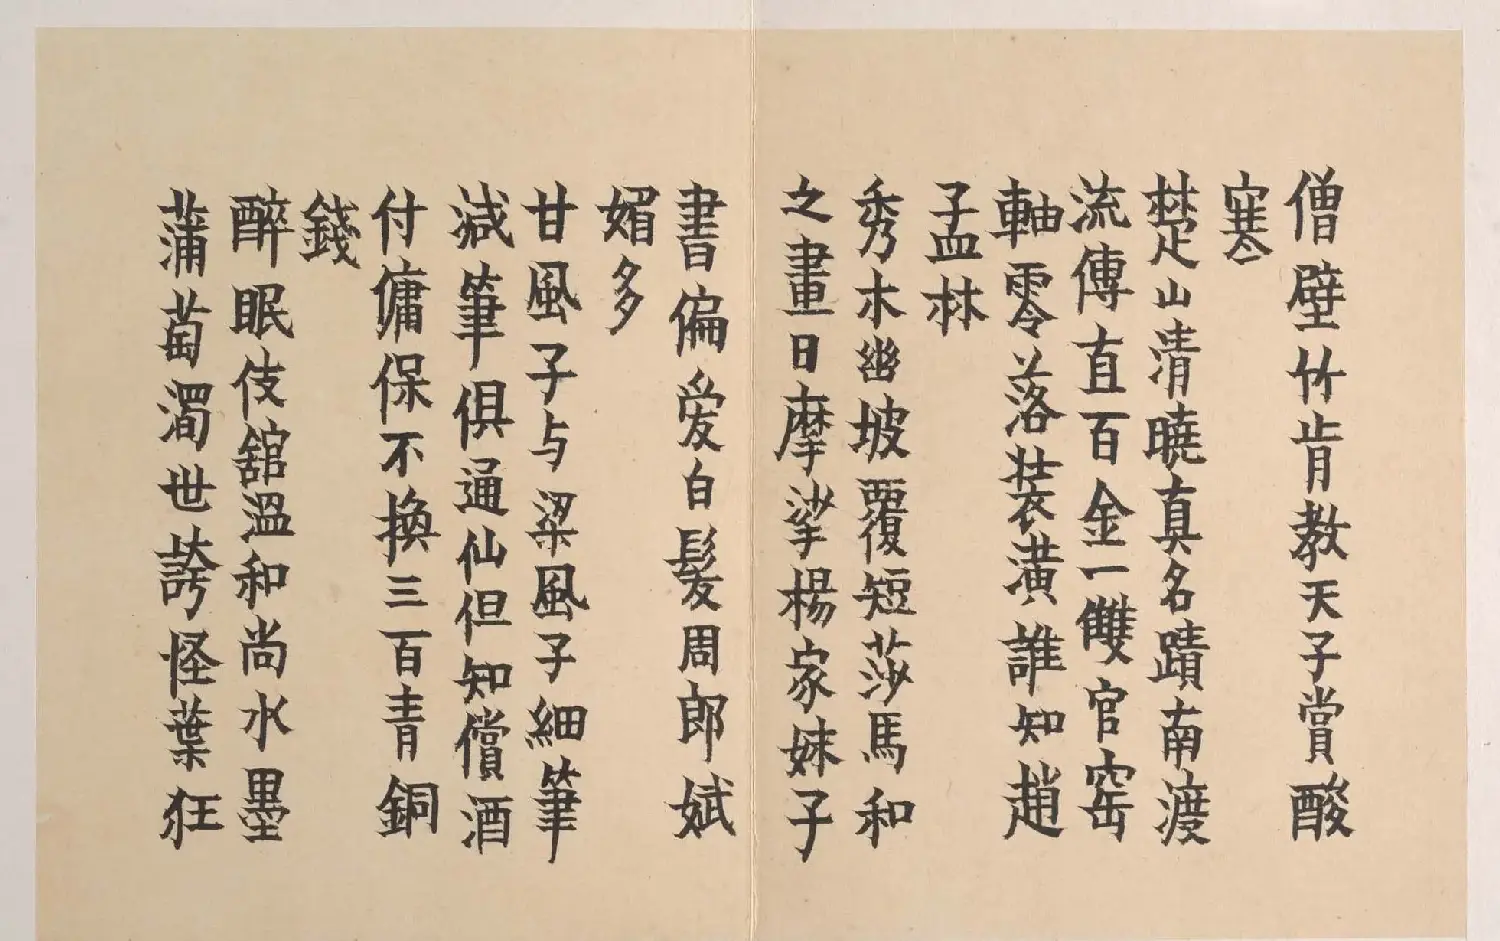 僧壁竹肯教天子賞酸
寒
楚山清曉真名蹟南渡
流傳直百金一雙官窑
軸零落裝潢誰知趙
孟林
秀木幽坡覆短莎馬和
之畫日摩挲楊家妹子
書偏爱白髮周郎斌
媚多
甘風子与梁風子細筆
減筆俱通仙但知償酒
付傭保不換三百青銅
錢
醉眠伎舘溫和尚水墨
蒲萄濁世誇怪葉狂